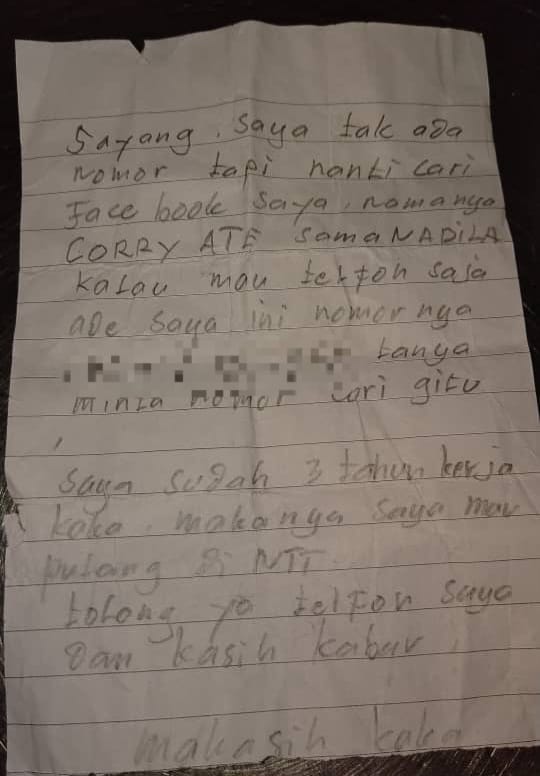 Sayang. Saya tak ada
nomor tapi nanti cari
Face book saya, namanya
CORRY ATE sama NADiLA
Kalau mau telfon saja
ade saya ini nomor nya
tanya
minta nomor cori gitu
,
saya sudah 3 tahun kerja
kaka. makanya saya mau
pulang di NTT.
tolong ya telfon saya
dan kasih kabar
makasih kaka